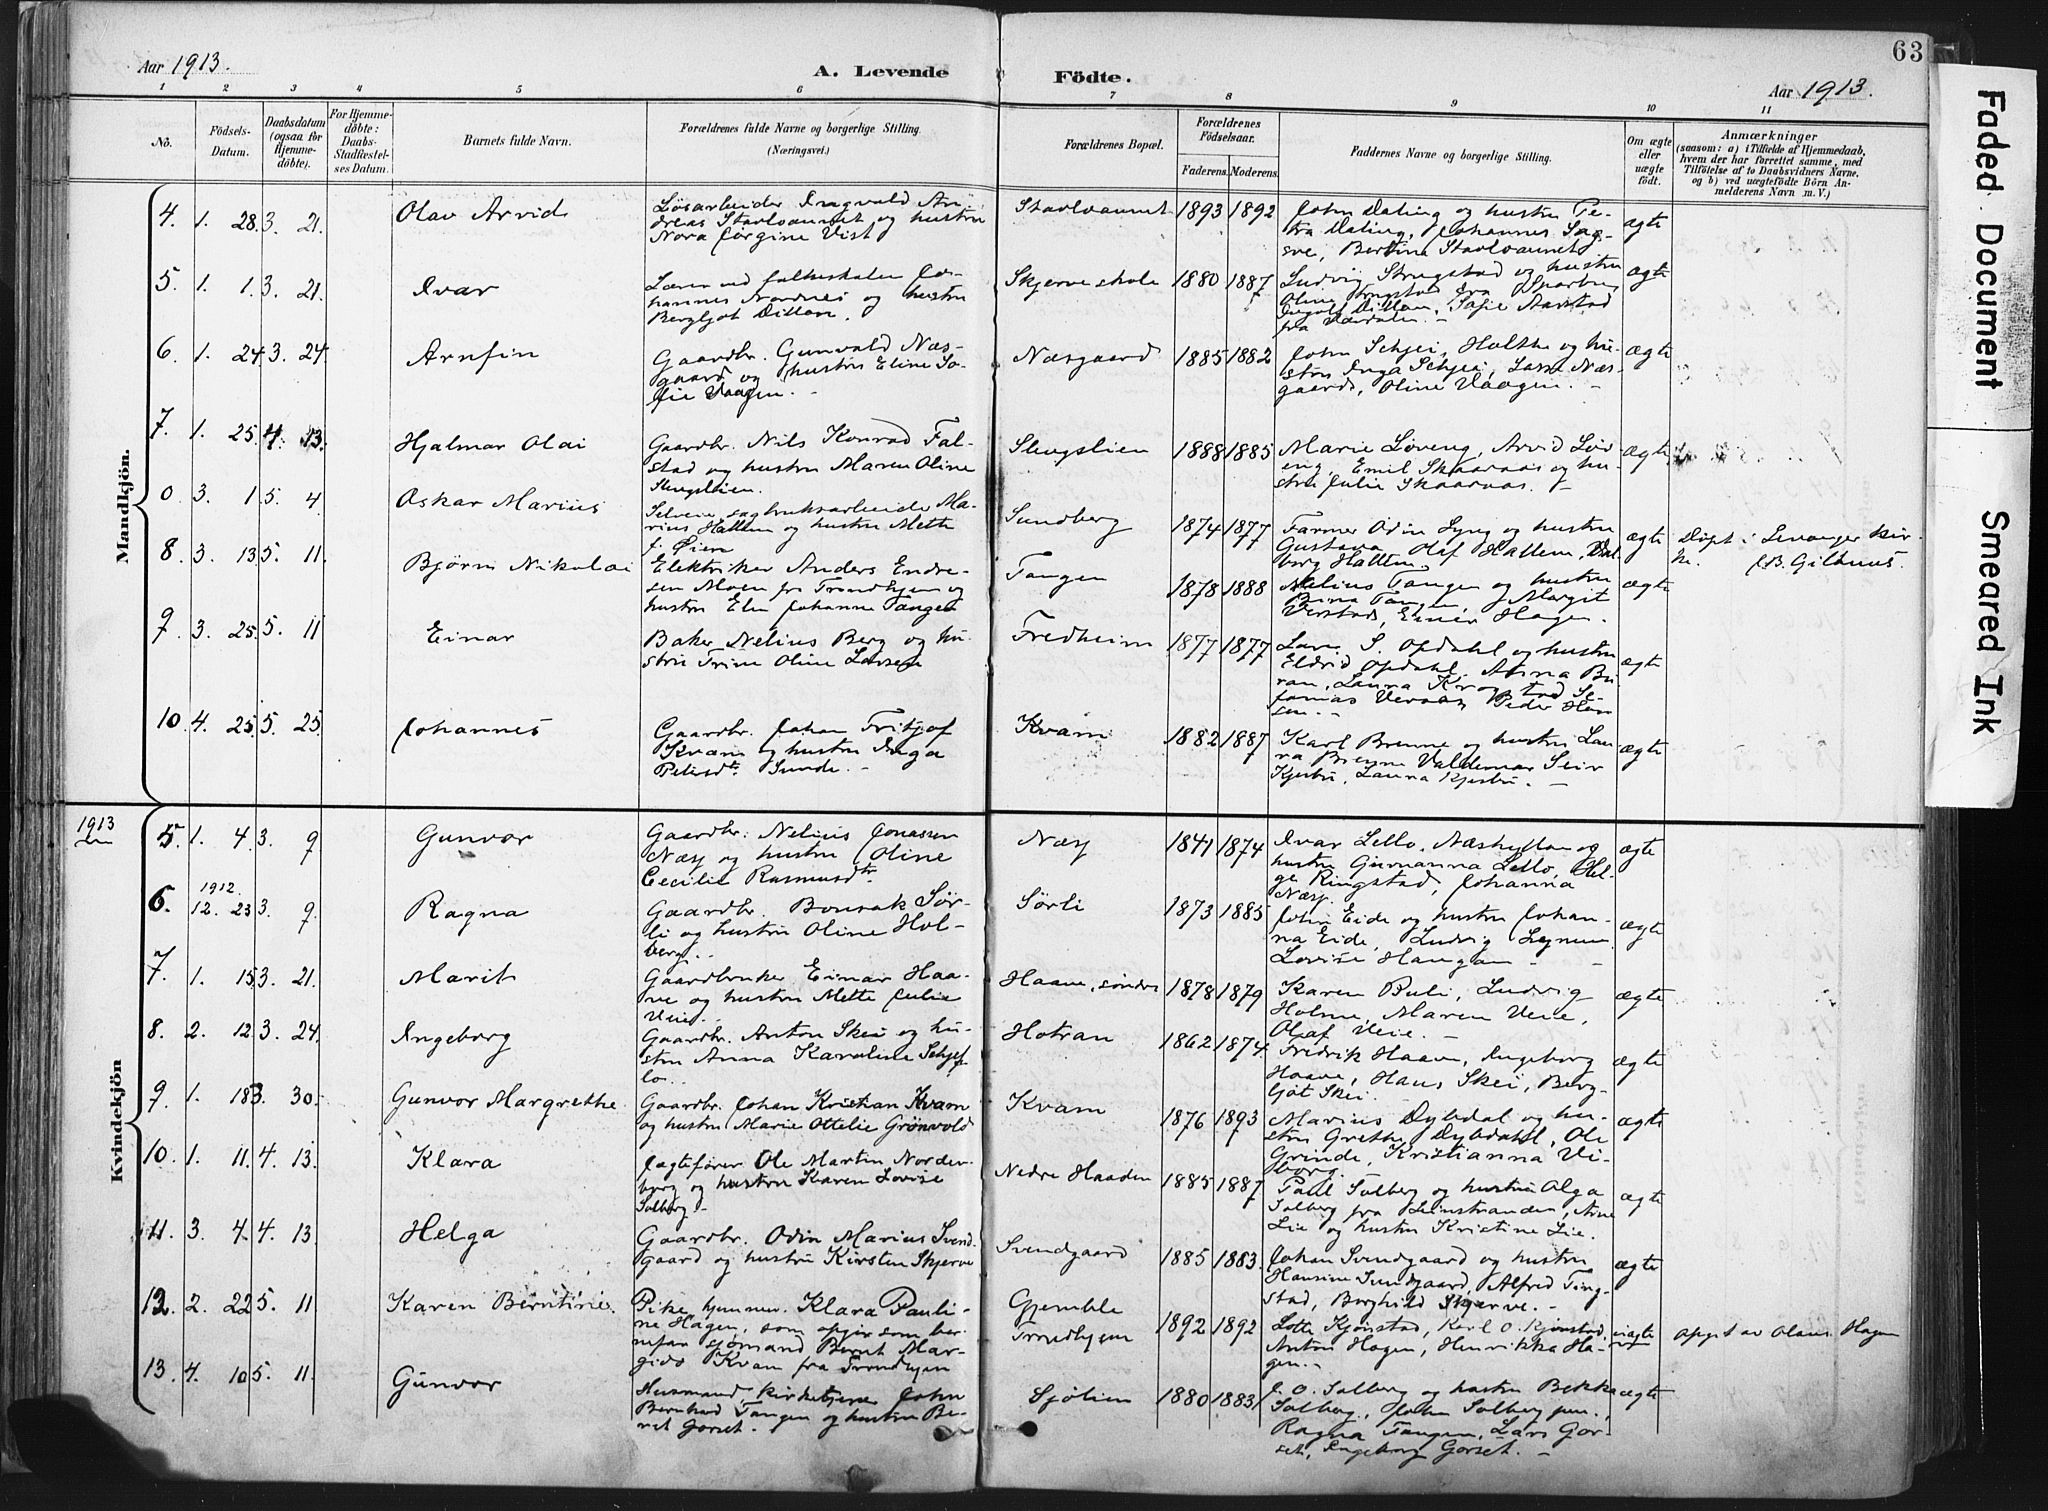 63
Aar 1913.
A. Levende Födte.
Aar 1913.
1 2 3 4 5 6 7 8 9 10 11
No.
Födsels-Datum.
Daabsdatum (ogsaa for Hjemmedöbte).
For Hjemmedöbte: Daabs-Stadfæstelses Datum.
Barnets fulde Navn.
Forældrenes fulde Navne og borgerlige Stilling.
(Næringsvei.)
Forældrenes Bopæl.
Forældrenes Födselsaar.
Faderens. Moderens.
Faddernes Navne og borgerlige Stilling.
Om ægte eller uægte födt.
Anmærkninger
(saasom: a) i Tilfælde af Hjemmedaab, hvem der har forrettet samme, med Tilföielse af to Daabsvidners Navne, og b) ved uægtefödte Börn Anmelderens Navn m. V.)
Mandkjön.
4. 1. 28. 3. 21. Olav Arvid
Løsarbeider Ingvald Andreas Stavlvannet og hustru Nora Jørgine Vist
Stavlvannet 1893 1892
John Daling og hustru Petra Daling, Johannes Sagsve, Bertina Stavlvannet ægte
5. 1. 1. 3. 21. Ivar
Lærer ved folkeskolen Johannes Nordnes og hustru Bergljot Dillan.
Skjerve skole 1880 1887
Ludvig Strugstad og hustru Oline Strugstad fra Sparbu, Dillan, Sofie Aarstad fra Værdalen. ægte
6. 1. 24. 3. 24. Arnfin
Gaardbr. Gunvald Næsgaard og hustru Eline Sofie Vaagen.
Næsgaard 1885 1882
John Schjei, Holthe og hustru Inga Schjei, Næsgaard, Oline Vaagen. ægte
7. 1. 25. 4. 13. Hjalmar Olai
Gaardbr. Nils Konrad Falstad og hustru Maren Oline Slugslien.
Slugslien 1888 1885
Marie Løveng, Arvid Løveng, Emil Skaarvas og hustru Julie Skaarvas. ægte
0 3. 1. 5. 4 Oskar Marius
Selveier sagbruksarbeider Marius Hallem og hustru Mette f. Øien
Sundberg 1874 1877
Farmer Odin Lyng og hustru Gustava, Olaf Hallem, Hallem. ægte
Døpt i Levanger kirke. (B. Gilhuus.
8. 3. 13. 5. 11. Bjørn Nikolai
Elektriker Anders Endresen Moen fr Trondhjem og hustru Elen Johanne Tangen
Tangen 1878 1888
Nelius Tangen og hustru Bina Tangen, Margit Verstad, Einar Hagen. ægte
9. 3. 25. 5. 11 Einar
Baker Nelius Berg og hustru Trine Oline Larsen
Fredheim 1877 1877
S. Opdahl og hustru Eldrid Opdahl, Anna Buran, Laura Krogstad ægte
10. 4. 25. 5. 25. Johannes
Gaardbr. Johan Fritjof Kvam og hustru Inga Petersdtr. Sunde.
Kvam 1882 1887
Karl Brenne og hustru Laura Brenne Valdemar Kjesbu, Laura Kjesbu. ægte
Kvindekjön
1913
5. 1. 4. 3. 9 Gunvor
Gaardbr. Nelius Jonassen Næss og hustru Oline Cecilie Rasmusdtr.
Næss 1841 1874
Ivar Lello, Næshyllan og hustru Gurianna Lello, Helge Ringstad, Johanna Næss. ægte
6. 1912 12. 23 3. 9. Ragna
Gaardbr. Bonsak Sørli og hustru Oline Holberg.
Sørli 1873 1885
John Eide og hustru Johanna Eide, Ludvig Lynum, Lovise Haugan ægte
7. 1. 15. 3. 21. Marit
Gaardbruker Einar Haave og hustru Mette Julie Veie.
Haave, søndre 1878 1879
Karen Buli, Ludvig Holme, Maren Veie, Olaf Veie. ægte
8. 2. 12. 3. 24. Ingeborg
Gaardbr. Anton Skei og hustru Anna Karoline Schjeflo.
Hotran 1862 1874.
Fredrik Haave, Ingeborg Haave, Hans Skei, Bergljot Skei. ægte
9. 1. 18. 3. 30. Gunvor Margrethe
Gaardbr. Johan Kristian Kvam og hustru Marie Ottelie Grønvold
Kvam 1876 1893
Marius Dybdal og hustru Grethe Dybdahl, Ole Grinde, Kristianna Viborg. ægte
10. 1. 11. 4. 13. Klara
Jagtefører Ole Martin Nordenborg og hustru Karen Lovise Solberg
Nedre Haaden 1885 1887
Paul Solberg og hustru Olga Solberg fra Leinstranden, Arne Lie og hustru Kristine Lie. ægte
11. 3. 4. 4. 13. Helga
Gaardbr. Odin Marius Svendgaard og hustru Kirsten Skjerve
Svendgaard 1885 1883.
Johan Svendgaard og hustru Hansine Svendgaard, Alfred Tingstad, Borghild Skjerve. ægte
12. 2. 22 5. 11 Karen Berntine.
Pike hjemmev. Klara Pauline Hagen, som opgir som barnefar sjømand Bernt Margido Kvam fra Trondhjem
Gjemble Trondhjem 1892 1892
Lotte Kjønstad, Karl O. Kjønstad, Anton Hagen, Henrikka Hagen. uægte
opgit av Olaus Hagen
13. 4. 10 5. 11. Gunvor
Husmand, kirketjener John Bernhard Tangen og hustru Beret Gorset.
Sjølien 1880 1883
J. O. Solberg og hustru Bekka Solberg, John Solberg jun., Ragna Tangen, Lars Gorset, Ingeborg Gorset. ægte
Faded Document
Smeared Ink